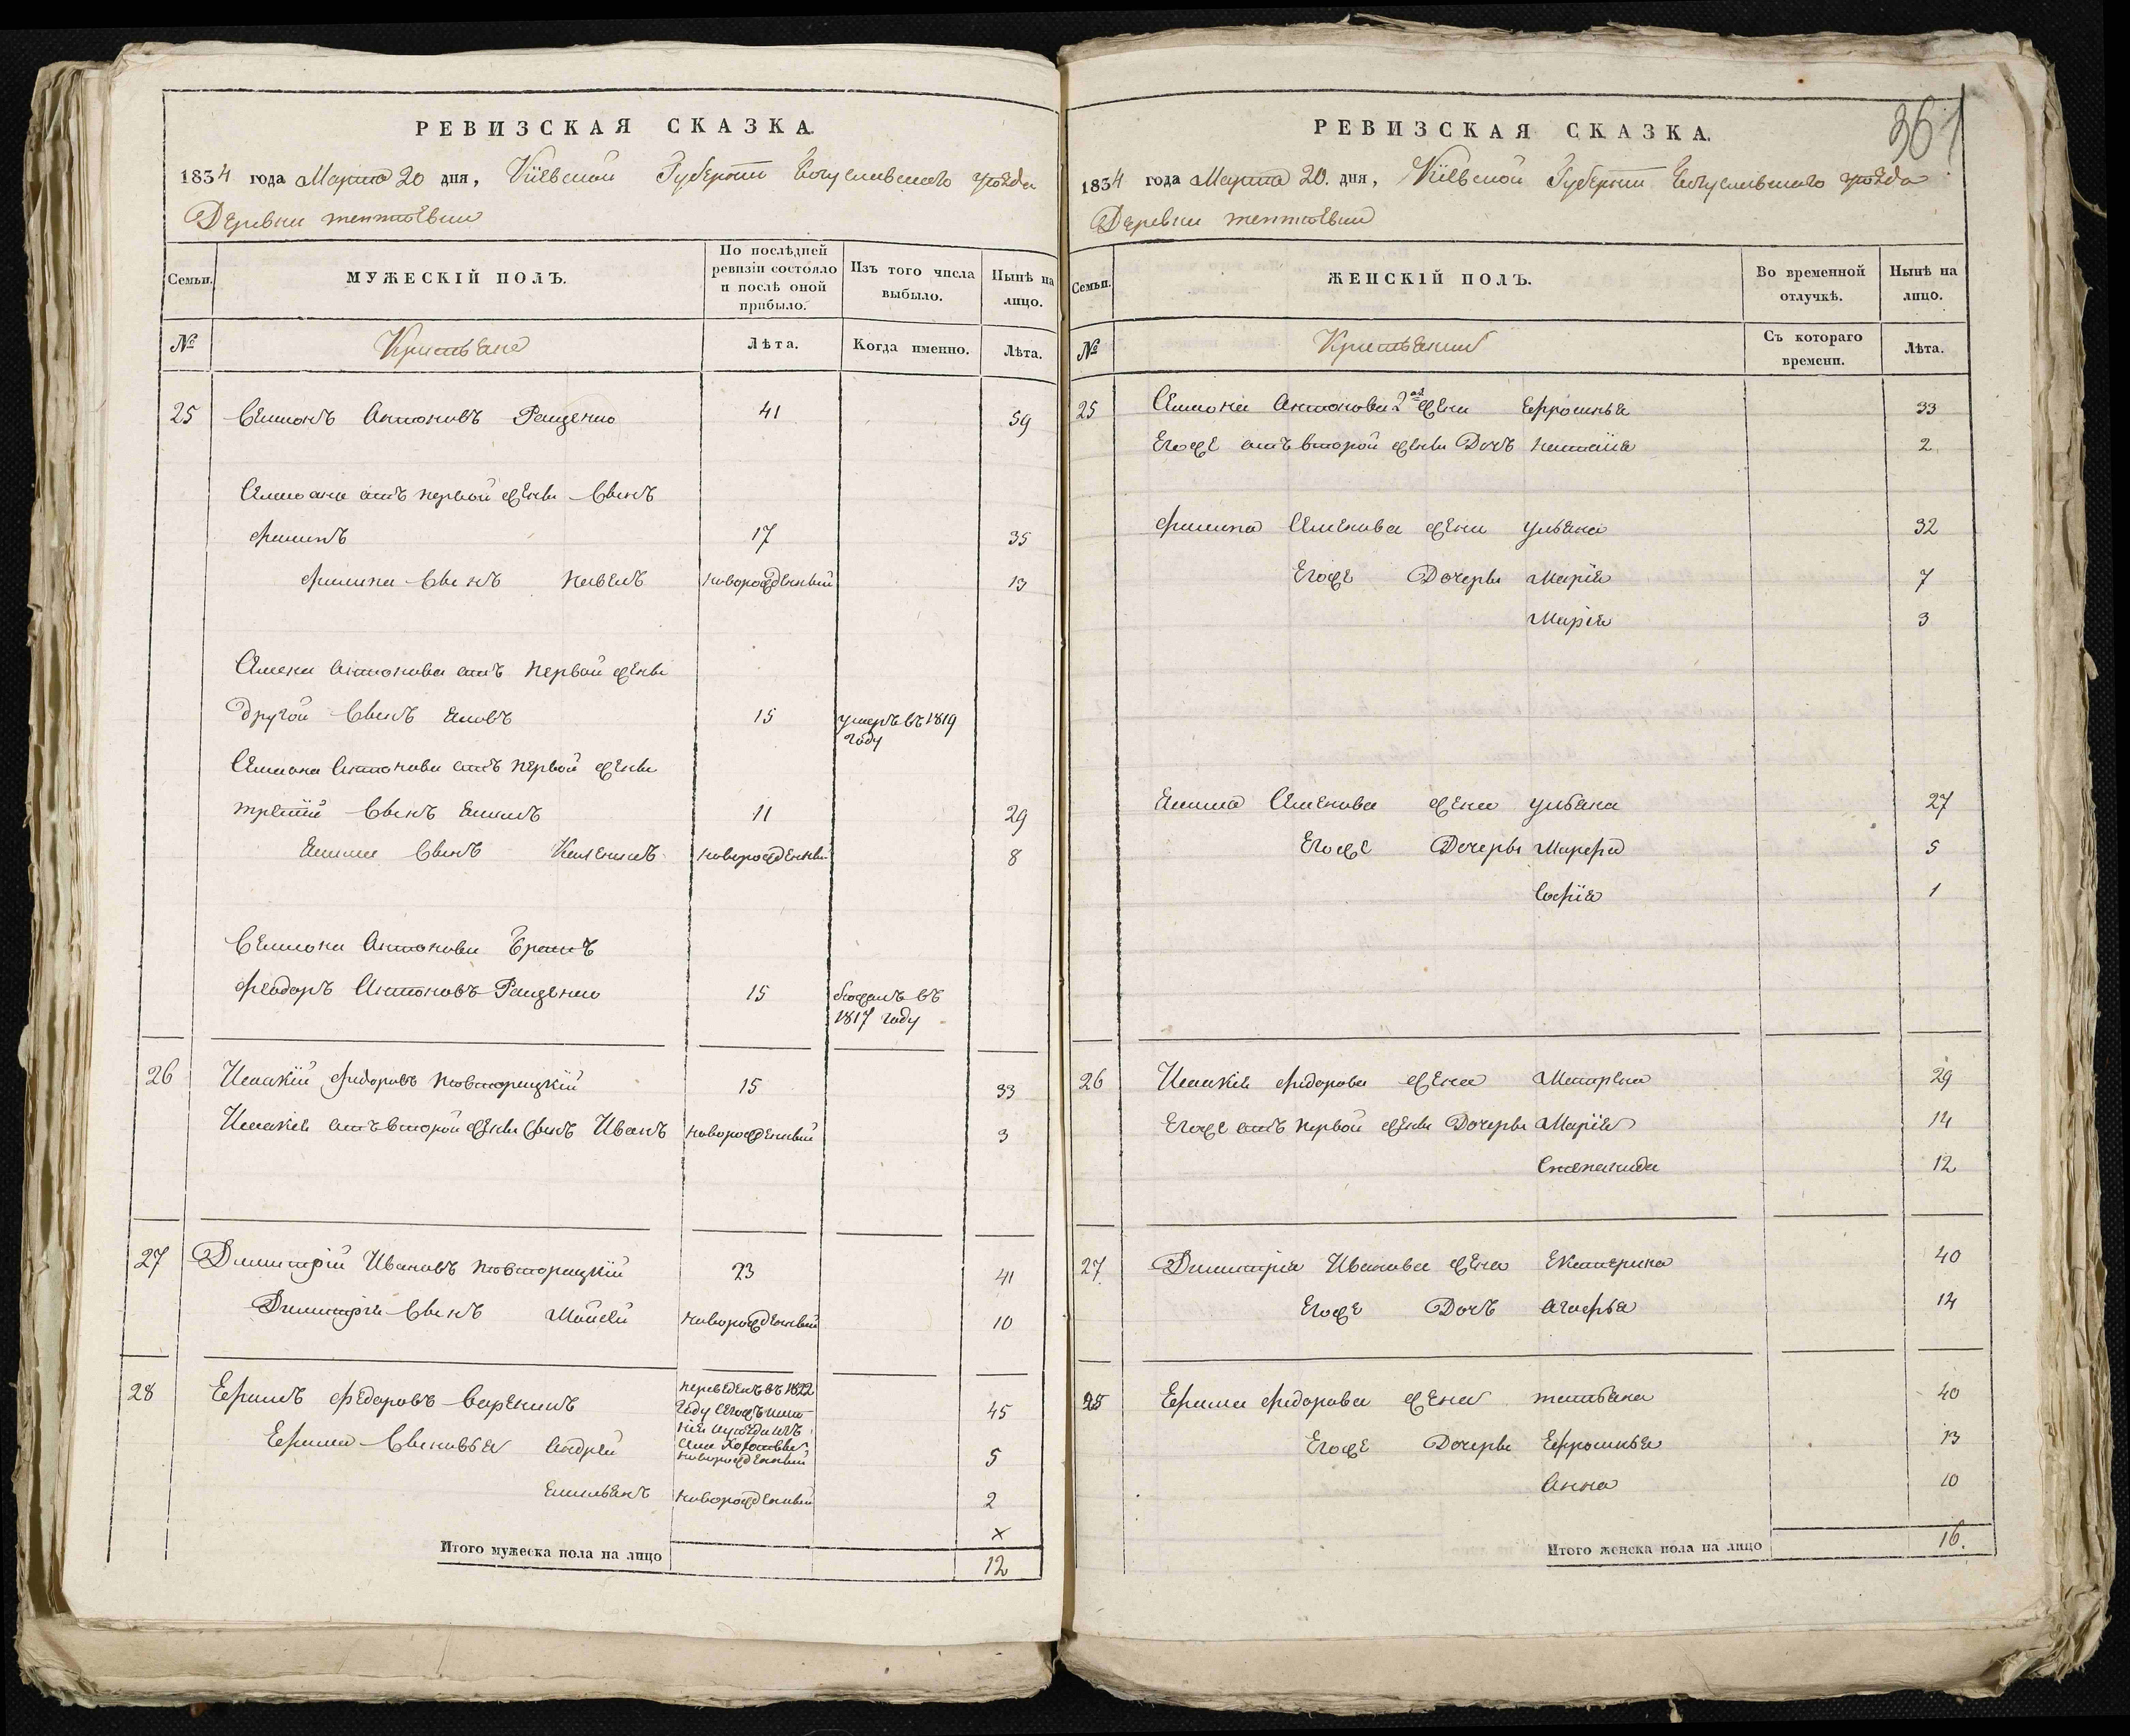 РЕВИЗСКАЯ СКАЗКА.
1834 года Марта 20 дня, Кіевской Губерніи Богуславскаго уѣзда
Деревни
Семьи.
МУЖЕСКІЙ ПОЛЪ.
По послѣдней ревизіи состояло и послѣ оной прибыло.
Изъ того числа выбыло.
Нынѣ на лицо.
№
Крестьяне
Лѣта.
Когда именно.
Лѣта.
25 Семионъ Антоновъ Ращенко 41 59
Семиона отъ первой жены сынъ
Филипъ 17 35
Филипа сынъ Павелъ новорожденный 13
Семена Антонова отъ первой жены
другой сынъ Яковъ 15 умеръ въ 1819
году
Семиона Антонова отъ первой жены
третій сынъ Якимъ 11 29
Якима сынъ новорожденный 8
Семиона Антонова братъ
Феодоръ Антоновъ Ращенко 15 бежалъ въ
1817 году
26 Исакій Федоровъ 15 33
Исакія отъ второй жены сынъ Иванъ новорожденный 3
27 Димитрій Ивановъ 23 41
Димитрія сынъ Мойсей новорожденный 10
28 Ефимъ Федоровъ 45
переведенъ въ 1822
году
Ефима сыновья Андрей новорожденный 5
Емильянъ новорожденный 2
×
Итого мужеска пола на лицо 12
361
РЕВИЗСКАЯ СКАЗКА.
1834 года Марта 20. дня, Кіевской Губерніи Богуславскаго уѣзда
Деревни
Семьи.
ЖЕНСКІЙ ПОЛЪ.
Во временной отлучкѣ.
Нынѣ на лицо.
№
Крестьянки
Съ котораго времени.
Лѣта.
25 Семиона Антонова 2ая жена Ефросинья 33
Егоже отъ второй жены дочь Наталія 2
Филипа Семенова жена Ульяна 32
Егоже дочеры Марія 7
Марія 3
Якима Семенова жена Ульяна 27
Егоже дочеры Марфа 5
Софія 1
26 Исакія Федорова жена Макрена 29
Егоже отъ первой жены дочеры Марія 14
Степанида 12
27 Димитрія Иванова жена Екатерина 40
Егоже дочь Агафья 14
28 Ефима Федорова жена Татьяна 40
Егоже дочеры Ефросинья 13
Анна 10
Итого женска пола на лицо 16.